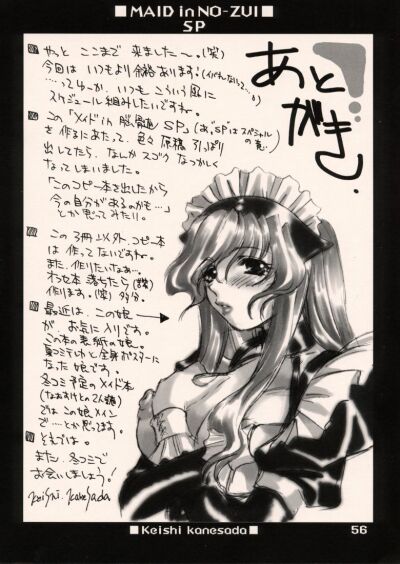 ■ MAID in NO-ZUI ■
SP
あとがき.
やっと ここまで 来ました〜。(笑)
今回は いつもより 余裕あります!
……ってゆーか、いつも こういう風に
スケジュール組みしたいですねー。
この「メイドin脳髄SP」(あ、"SP"はスペシャルの意)
を作るにあたって、色々原稿引っぱり
出してたら、なんか スゴク なつかしく
なってしまいました。
「このコピー本を出したから
今の自分があるのかも…」
とか思ってみたり。
この3冊以外、コピー本
は 作ってないですねー。
また、作りたいなぁ…
オフセ本 落ちたら
作ります。(笑) 多分。
最近は、この娘 →
が、お気に入りです。
この本の表紙の娘。
夏コミでわと全身ポスターに
なった娘です。
冬コミ予定のメイド本
(なおすけとの2人誌)
では この娘 メイン
で…とか思ってます。
それでは。
また、冬コミで
お会いしましょう!
Keishi Kanesada
■ Keishi kanesada ■
56